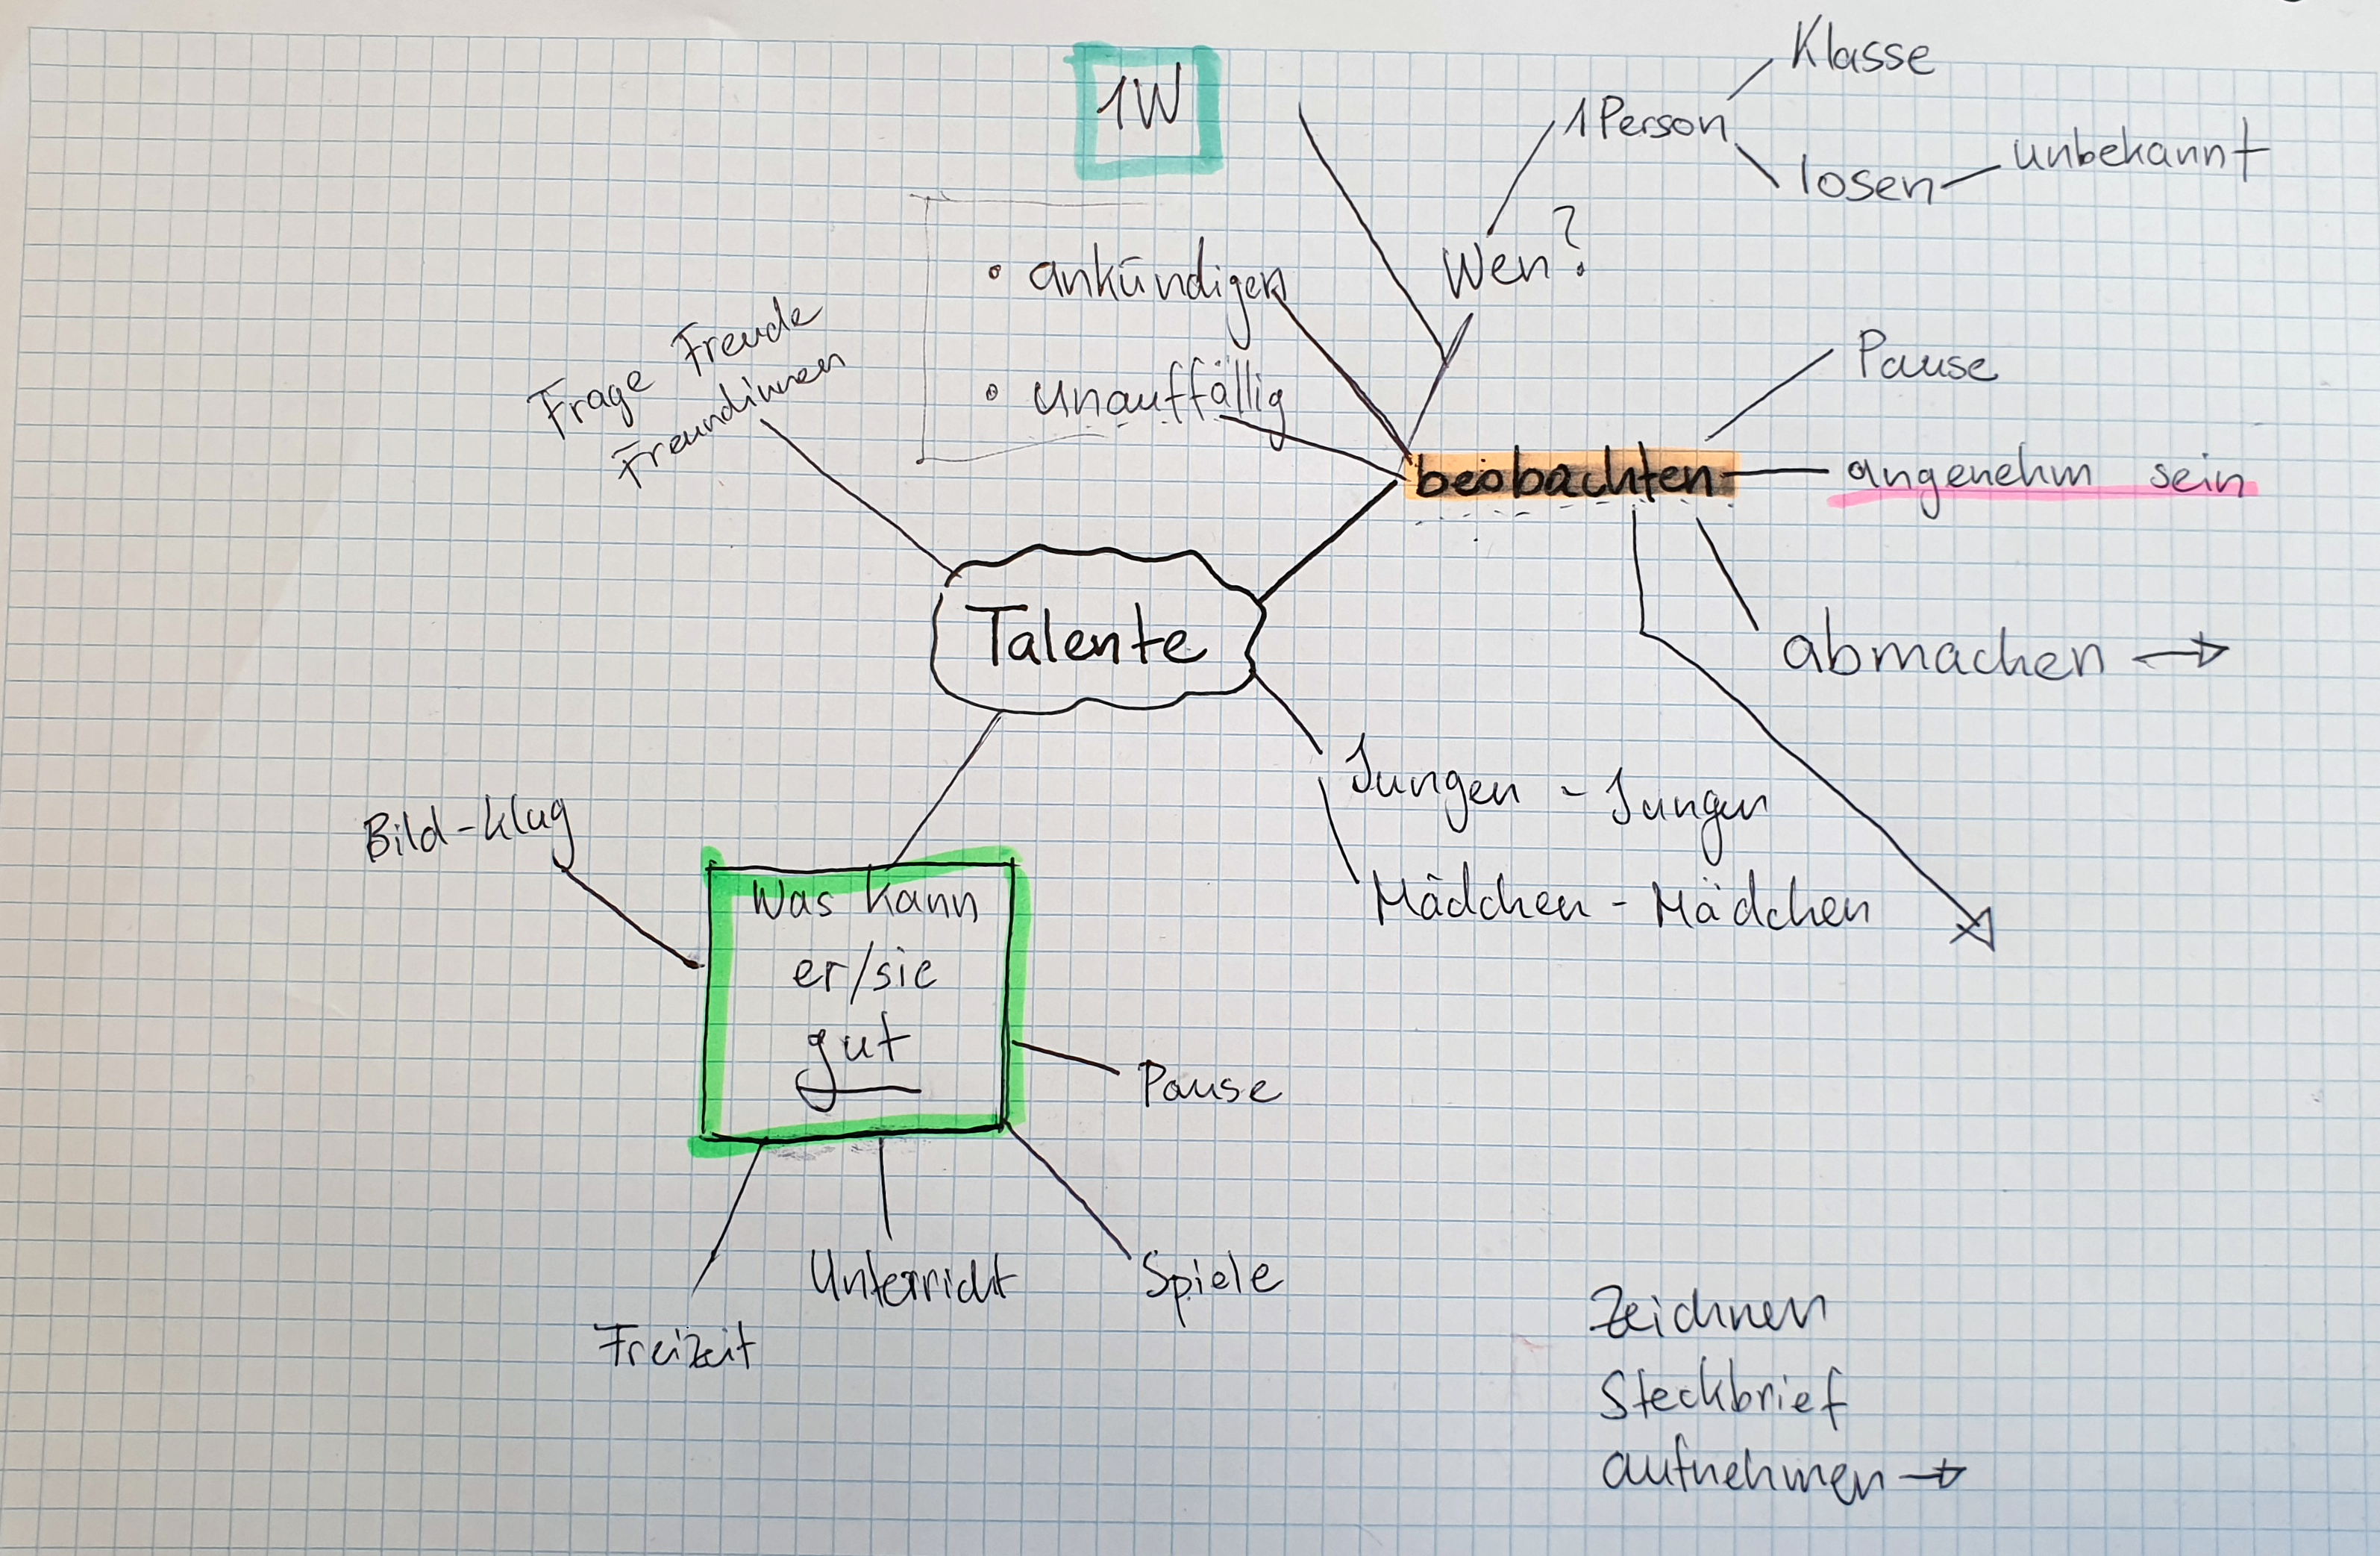 1W
Klasse
1 Person
losen
unbekannt
Wen?
• ankündigen
• unauffällig
Frage Freude
Freundinnen
Pause
beobachten
angenehm sein
Talente
abmachen →
Jungen - Jungen
Mädchen - Mädchen
Bild-klug
Was kann
er/sie
gut
Pause
Spiele
Unterricht
Freizeit
Zeichnen
Steckbrief
aufnehmen →